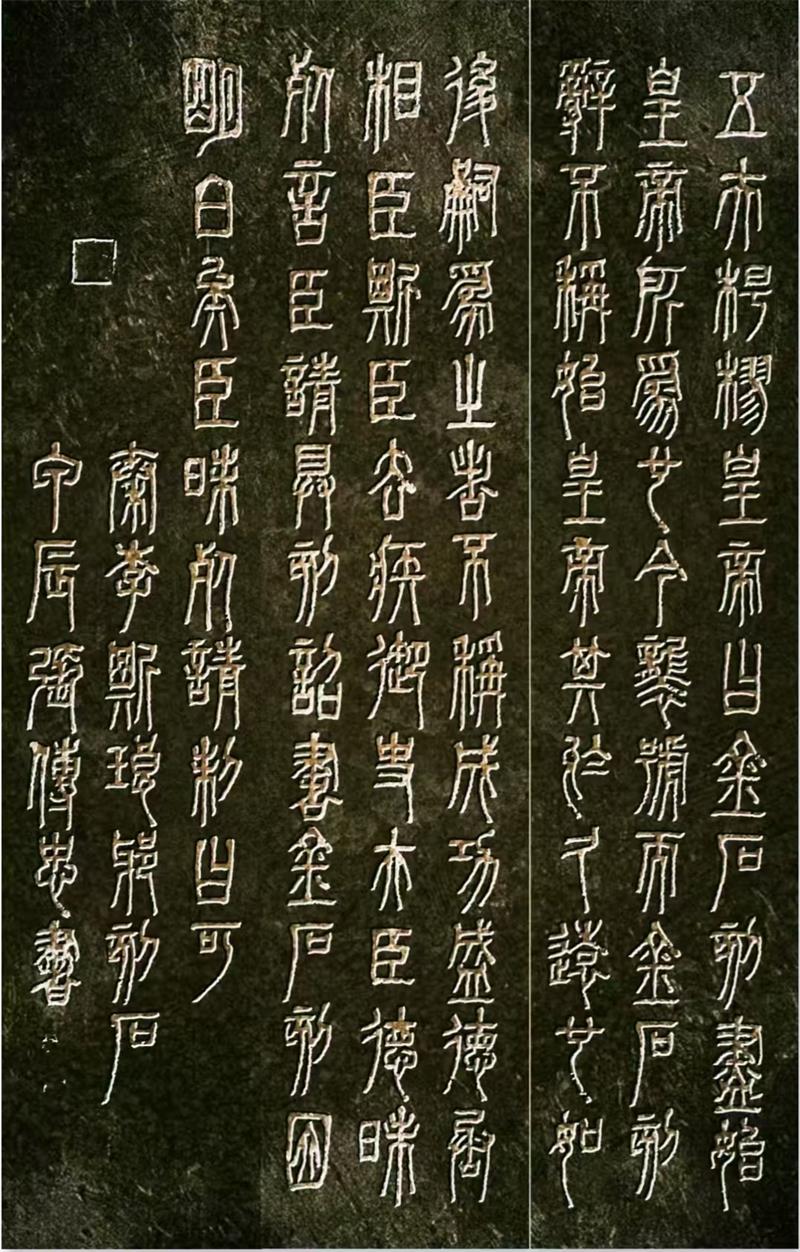 五夫楊樛皇帝曰金石刻盡始
皇帝所爲也今襲號而金石刻
辭不稱始皇帝其於久遠也如
後嗣爲之者不稱成功盛德丞
相臣斯臣去疾御史夫臣德昧
死言臣請具刻詔書金石刻因
明白矣臣昧死請制曰可
秦李斯琅邪刻石
甲辰張傳忠書